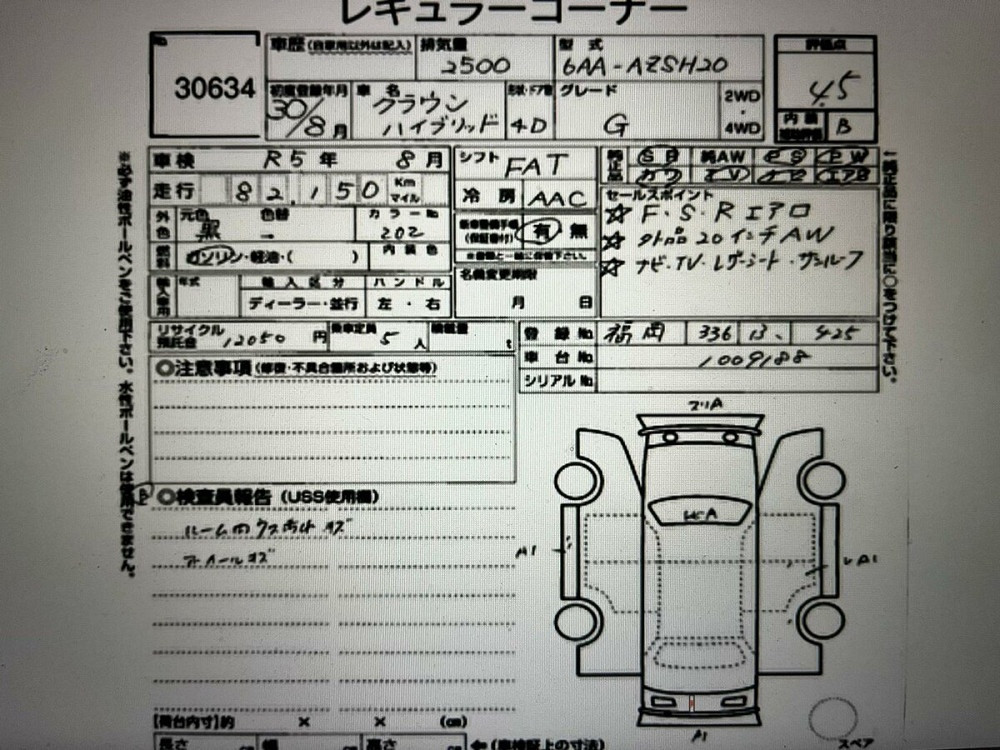 レギュラーコーナー
No
30634
車歴(自家用以外は記入)
排気量
2500
型式
6AA-AZSH20
評価点
4.5
初度登録年月
30/8月
車名
クラウン
ハイブリッド
形状・ドア数
4D
グレード
G
2WD
・
4WD
内装
B
車検
R5年 8月
シフト
FAT
純正品
SR 純AW PS PW
カワ TV ナビ エアB
走行
82,150
Km
マイル
冷房
AAC
セールスポイント
☆ F・S・Rエアロ
☆ 外品20インチAW
☆ ナビ・TV・レザーシート・サンルーフ
外色
元色
黒
色替
→
カラーNo
202
(保証書付)
有 無
燃料
ガソリン・軽油・( )
内装色
名義変更期限
月 日
輸入車用
年式
輸入区分
ディーラー・並行
ハンドル
左・右
リサイクル
預託金
12050円
乗車定員
5人
積載量
t
登録No
福岡 336 
425
車台No
1009188
シリアルNo
◎注意事項(修復・不具合箇所および状態等)
◎検査員報告(USS使用欄)
ルーム内ウスよごれ キズ
A1
A1
A1
スペア
【荷台内寸】約 × × (cm)
長さ cm 幅 cm 高さ cm ←(車検証上の寸法)
※必ず油性ボールペンをご使用下さい。水性ボールペンは使用できません。
純正品に限り該当に○をつけて下さい。